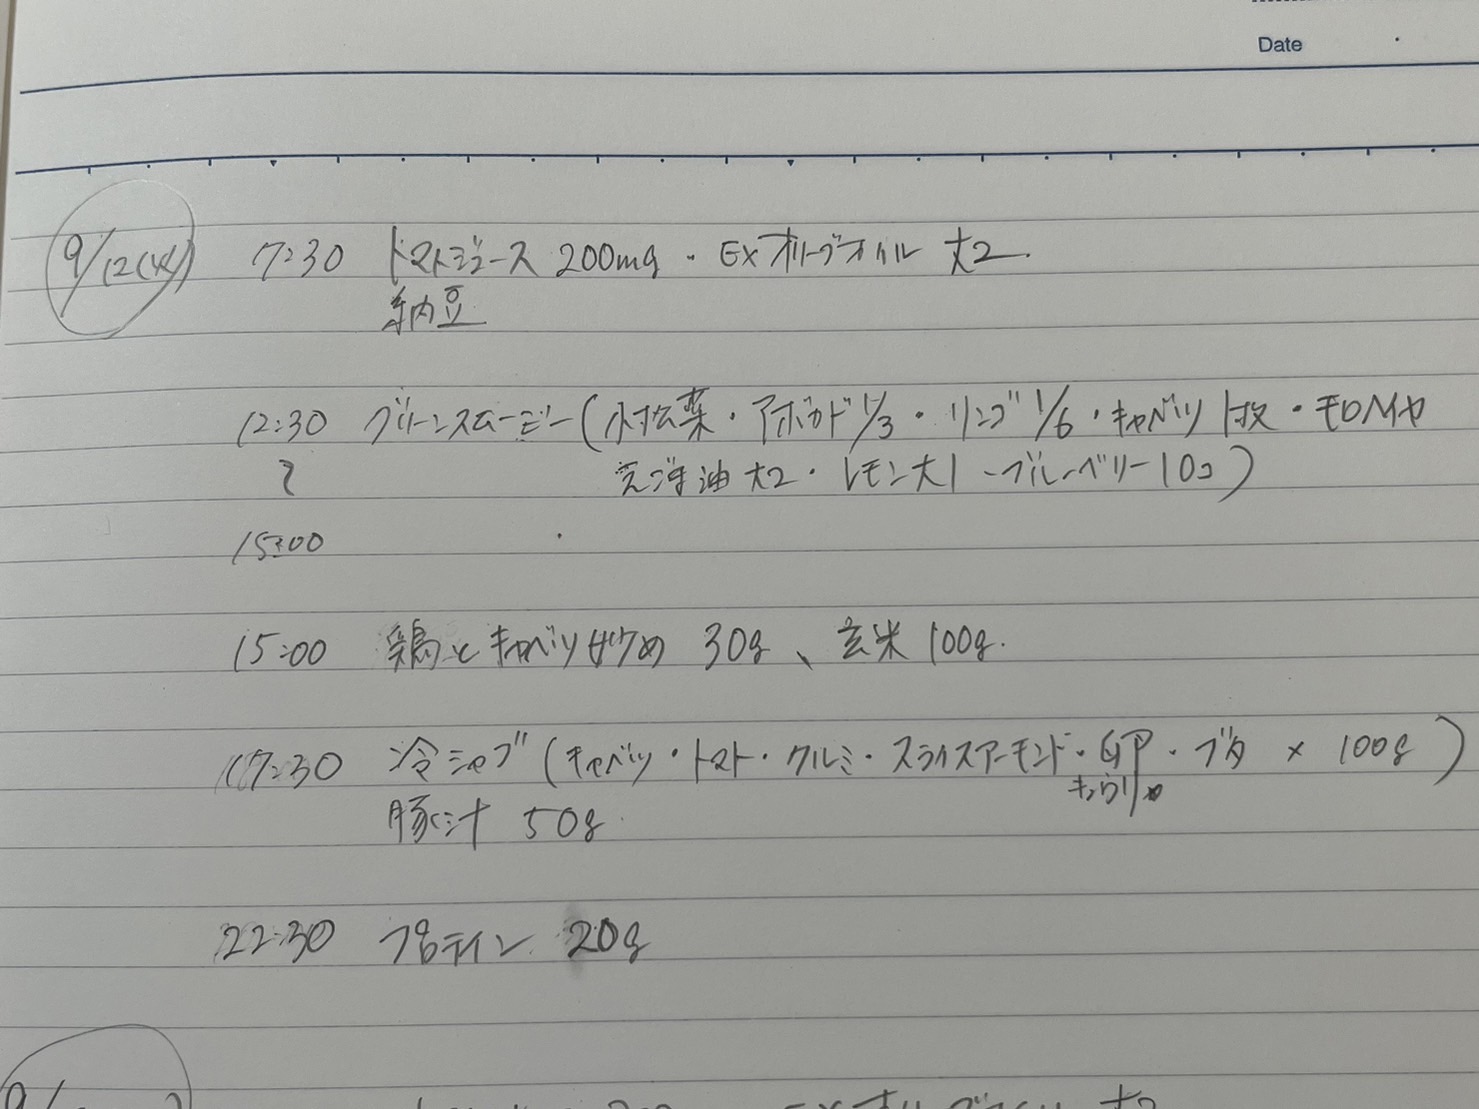 Date
9/12(火) 7:30 トマトジュース 200mg・EXオリーブオイル 大2
納豆
12:30 グリーンスムージー(小松菜・アボカド1/3・リンゴ1/6・キャベツ1枚・モロヘイヤ
〜 えごま油大2・レモン大1-ブルーベリー10コ)
15:00
15:00 鶏とキャベツ炒め 30g、玄米100g.
17:30 冷シャブ(キャベツ・トマト・クルミ・スライスアーモンド・・ブタ × 100g)
キュウリ
豚汁 50g
22:30 プロテイン 20g
EXオリーブオイル 大2